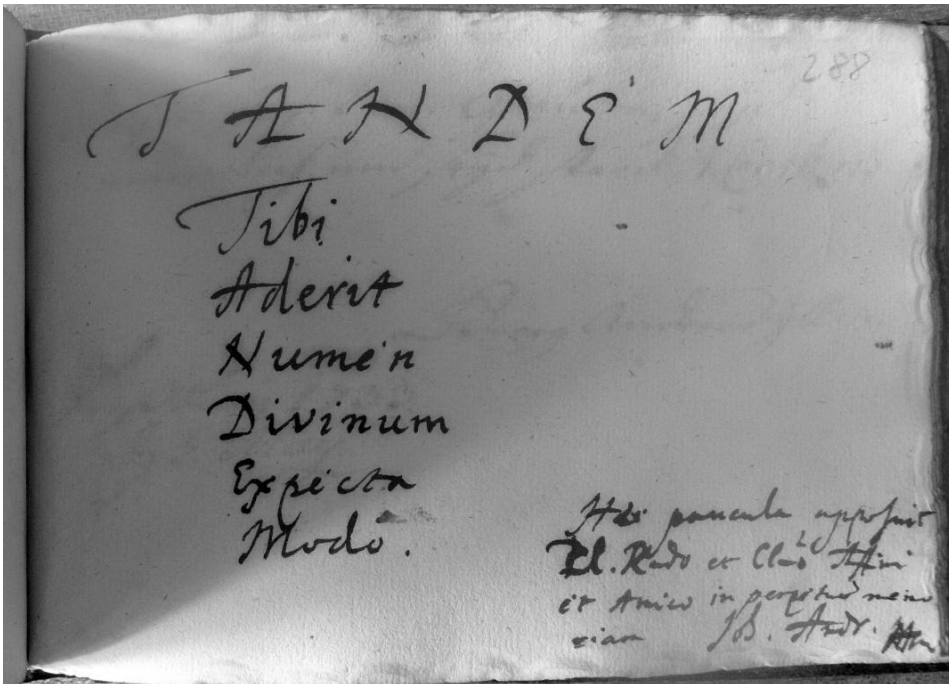 288
TANDEM
Tibi
Aderit
Numen
Divinum
Expecta
Modo.
Haec paucula apposuit
Pl. Rndo et Clmo Affini
et Amico in perpetuā memo
riam Joh. Andr.